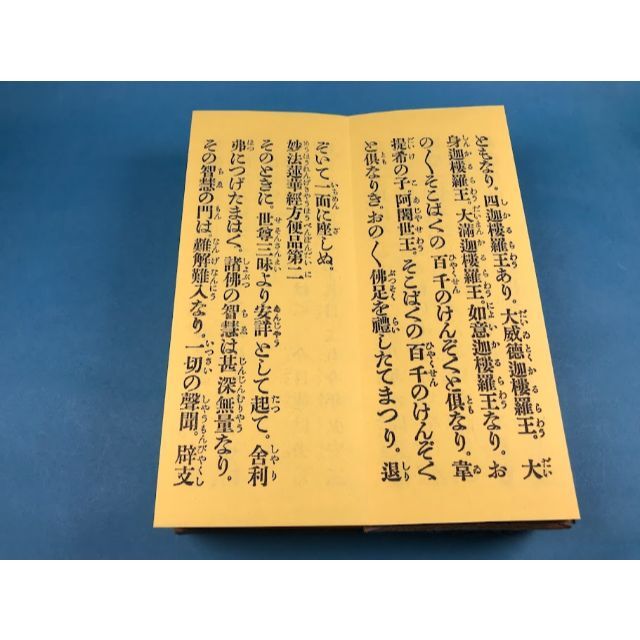 ともなり。四迦樓羅王あり。大威德迦樓羅王。大
身迦樓羅王。大滿迦樓羅王。如意迦樓羅王なり。お
の〱そこばくの百千のけんぞくと俱なり。韋
提希の子。阿闍世王。そこばくの百千のけんぞく
と俱なりき。おの〱佛足を禮したてまつり。退
ぞいて一面に座しぬ。
妙法蓮華經方便品第二
そのときに。世尊三昧より安詳として起て。舍利
弗につげたまはく。諸佛の智慧は甚深無量なり。
その智慧の門は。難解難入なり。一切の聲聞。辟支